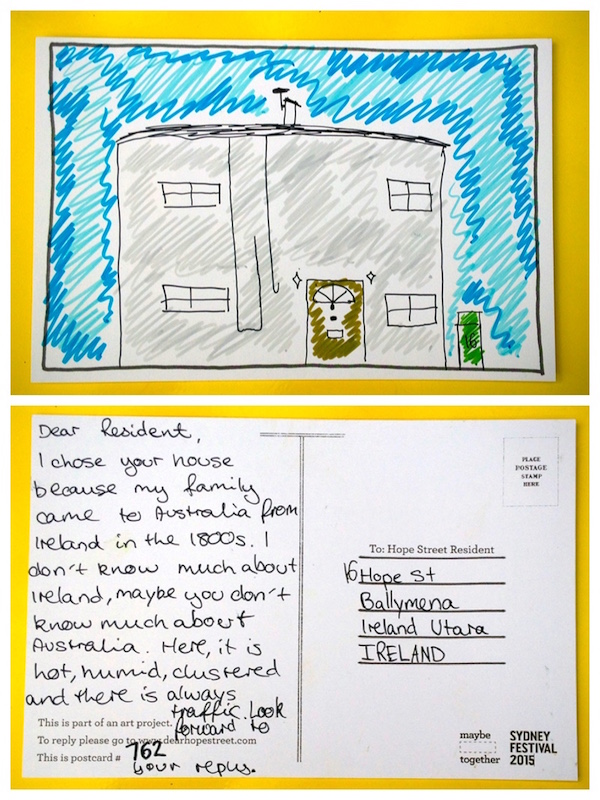 16
Dear Resident,
I chose your house
because my family
came to Australia from
Ireland in the 1800s. I
don't know much about
Ireland, maybe you don't
know much about
Australia. Here, it is
hot, humid, clustered
and there is always
traffic. Look
forward to
your reply.
This is part of an art project.
To reply please go to www.dearhopestreet.com
This is postcard # 762
PLACE
POSTAGE
STAMP
HERE
To: Hope Street Resident
16 Hope St
Ballymena
Ireland Utara
IRELAND
maybe
together
SYDNEY
FESTIVAL
2015